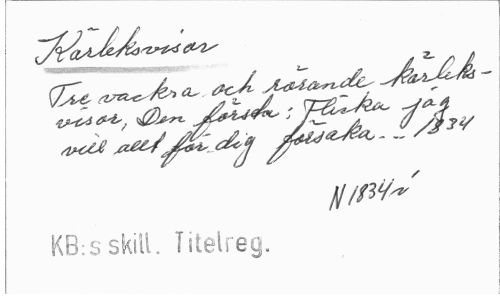 Kärleksvisor
Tre vackra och rörande kärleks-
visor, Den första: Flicka jag
vill allt för dig försaka... 1834
N 1834 i
KB:s skill. Titelreg.